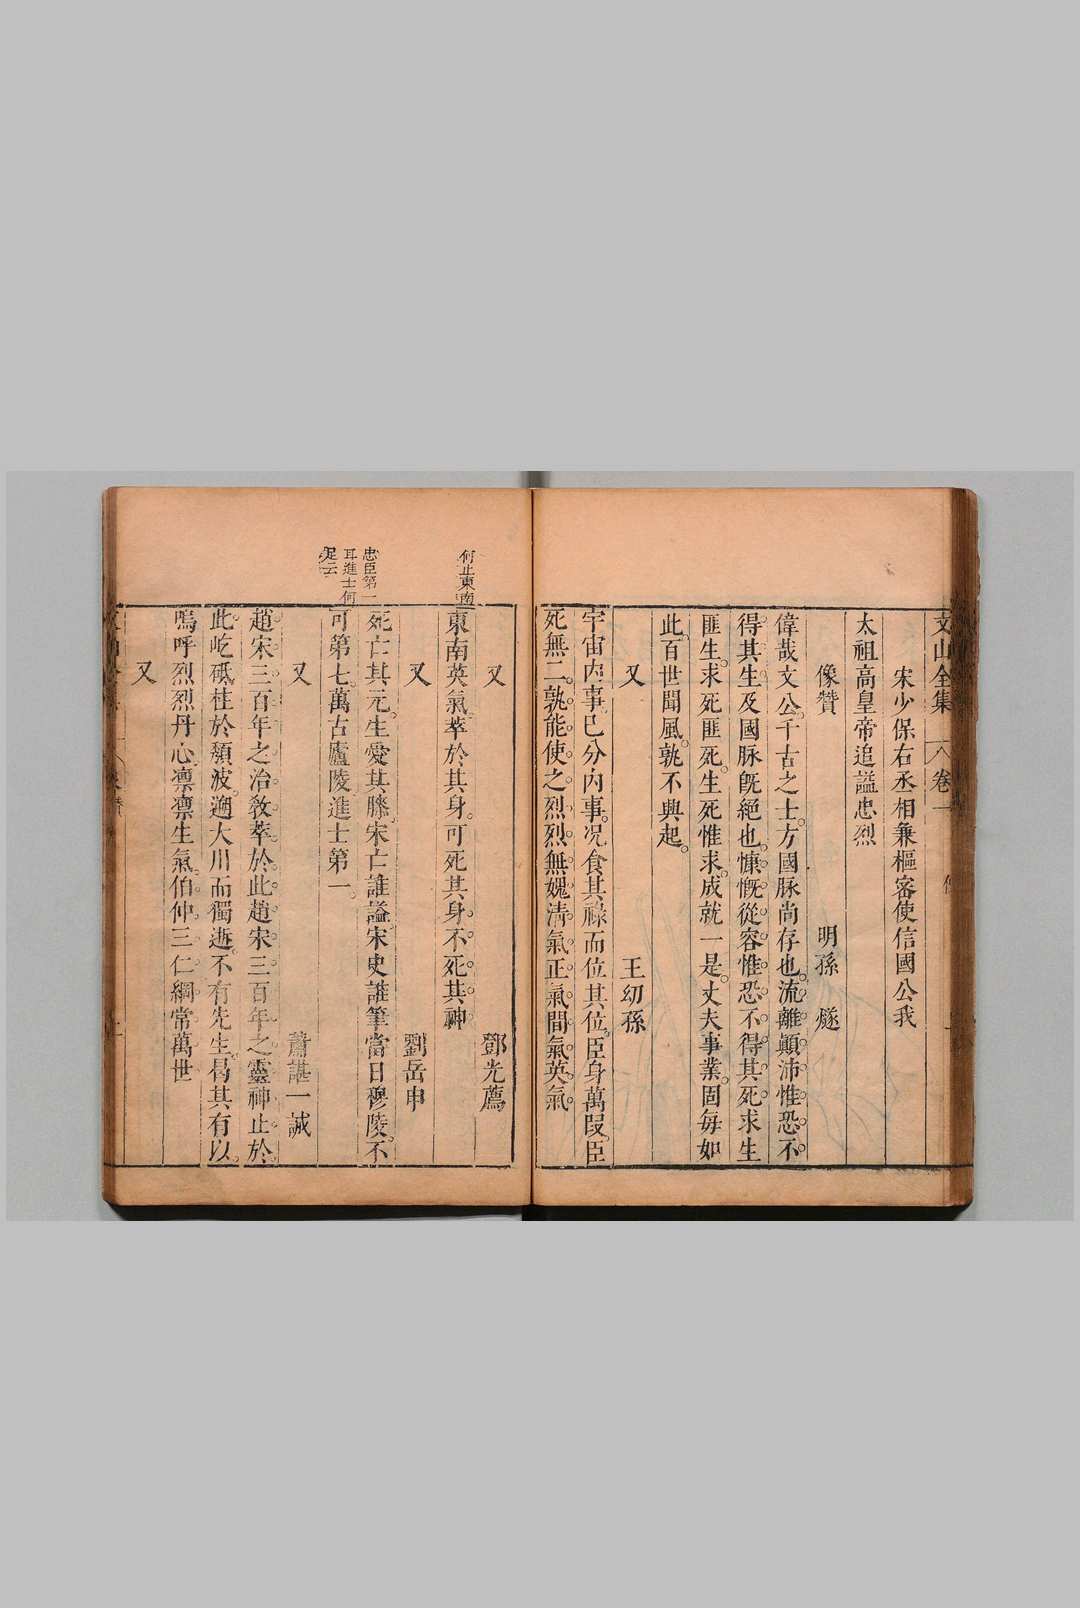 文山全集
卷一
宋少保右丞相兼樞密使信國公我
太祖高皇帝追謚忠烈
像贊 明孫 燧
偉哉文公千古之士方國脉尚存也流離顚沛惟恐不
得其生及國脉旣絕也慷慨從容惟恐不得其死求生
匪生求死匪死生死惟求成就一是丈夫事業固每如
此百世聞風孰不興起
又 王幼孫
宇宙内事已分内事况食其祿而位其位臣身萬段臣
死無二孰能使之烈烈無媿清氣正氣間氣英氣
又 鄧光薦
何止東南
東南英氣萃於其身可死其身不死其神
又 劉岳申
忠臣第一
耳進士何
足云
死亡其元生愛其賸宋亡誰謚宋史誰筆當日穆陵不
可第七萬古廬陵進士第一
又 蕭諶一誠
趙宋三百年之治敎萃於此趙宋三百年之靈神止於
此屹砥柱於頹波遡大川而獨逝不有先生曷其有以
嗚呼烈烈丹心凛凛生氣伯仲三仁綱常萬世
又